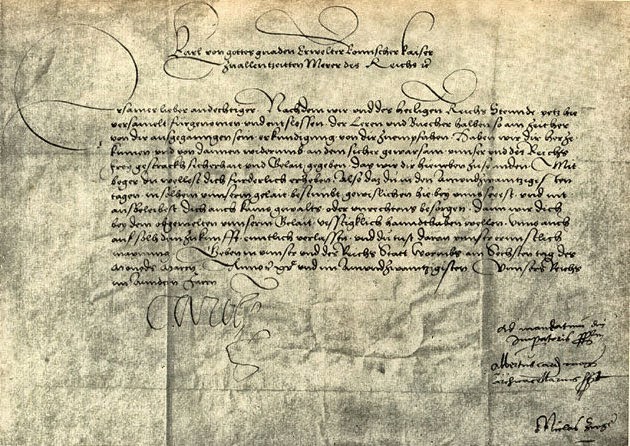 Karl von gottes gnaden Erwelter Romischer Kaiser
zu allen tzeitten Merer des Reichs etc
Ersamer lieber andechtiger. Nachdem wir und des heiligen Reichs Stennde, yetz hie
versamelt, furgenomen und entslossen, der Leren und Buecher halben, so ain zeither
von dir ausgegangen sein, erkundigung von dir zuempfahen, Haben wir dir herzu-
kumen, und von dannen widerumb an dein sicher gewarsam, unser und des Reichs
frey gestracks Sicherhait und Gelait gegeben, daz wir dir hieneben zusenden. Mit
beger du wellest dich furderlich erheben. Also daz du in den Ainundzwaintzig ten
tagen in solhem unserm gelait bestimbt gewislichen hie bey unns seiest, und nit
aussenbleibest, dich auch kains gewalts oder unrechtens besorgen. Dann wir dich
bey dem obgemelten unserm Glait vesstigklich hanndthaben wellen. Unns auch
auf solh dein zukunfft enntlich verlassen, und du tust daran unser ernnstlich
maynung. Geben in unser und des Reichs Statt Wormbs am Sechsten tag des
Moneds Marcy Anno etc und im Ainundzwaintzigisten Unsers Reichs
im Anndern Jaren
Carol
Ad mandatum
Imperatoris
Albertus card
archicancellarius
Niclas